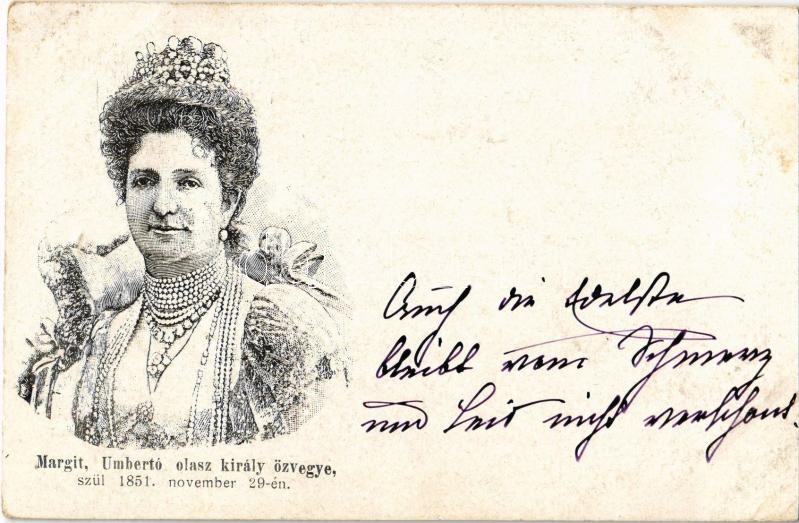 Margit, Umbertó olasz király özvegye,
szül 1851. november 29-én.
Auch die Edelste
bleibt vom Schmerz
und Leid nicht verschont.